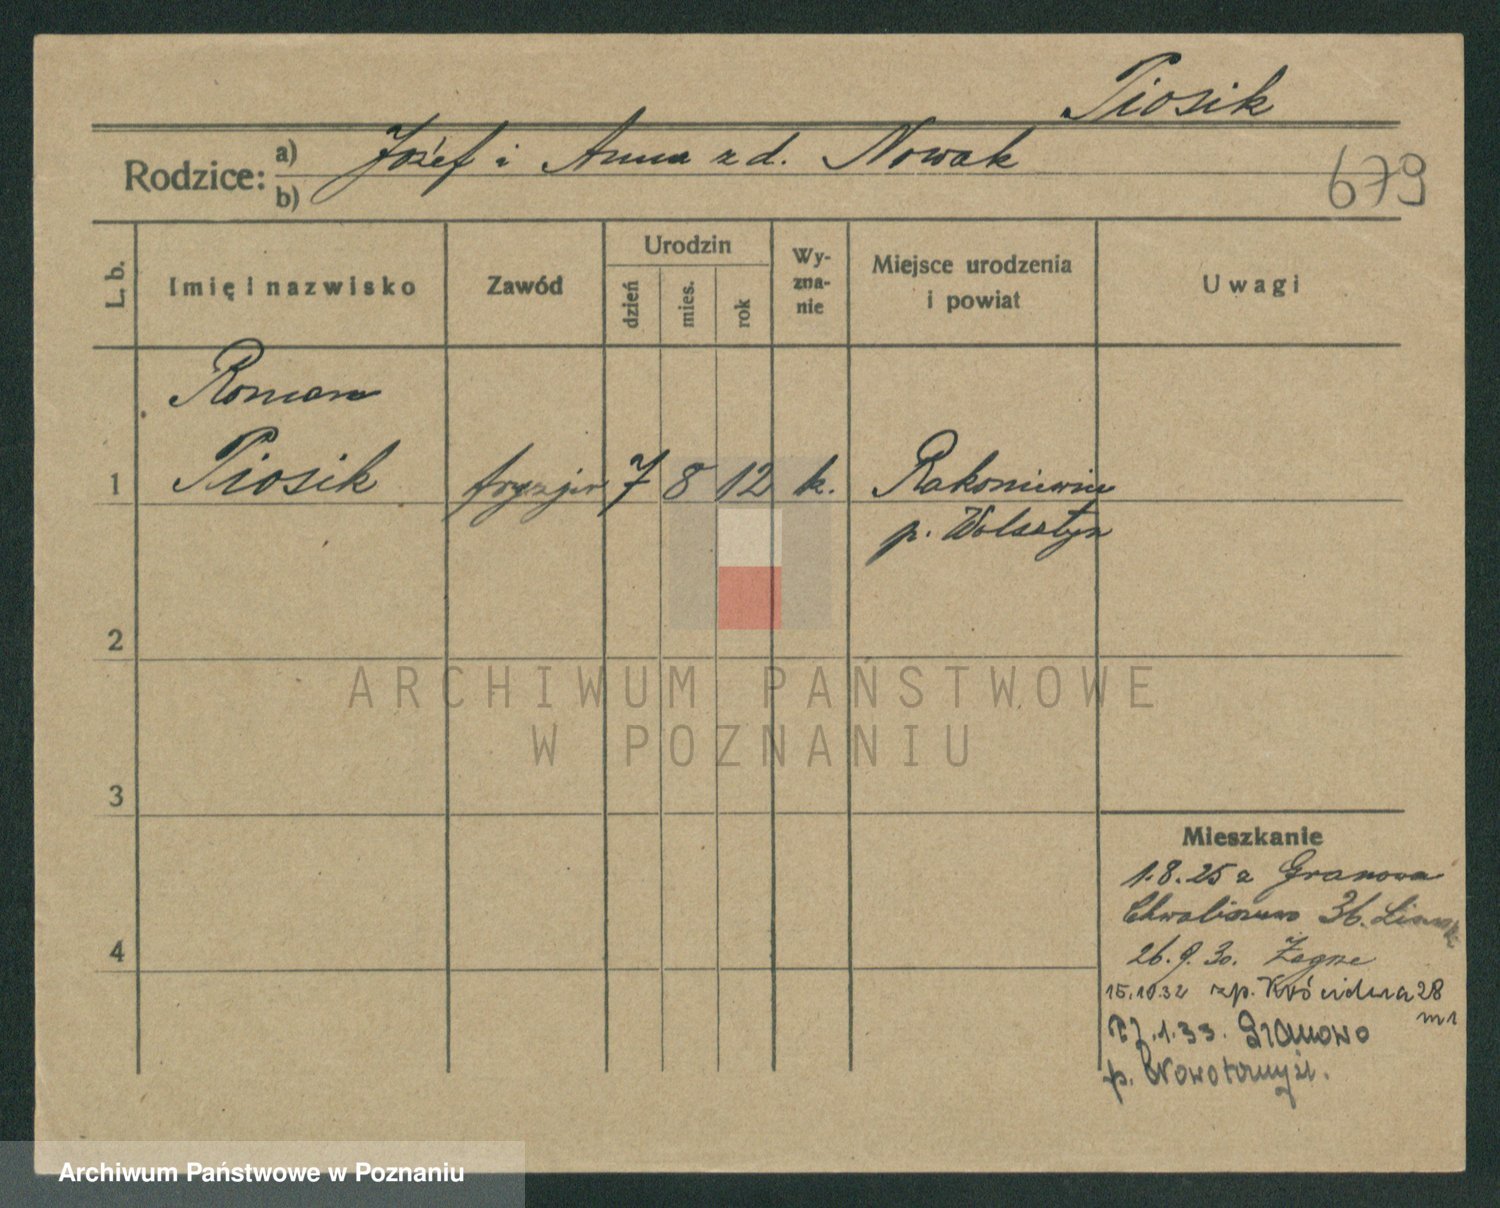 Piosik
Rodzice: a) Józef i Anna z d. Nowak
b)
679
L. b.
Imię i nazwisko
Zawód
Urodzin
dzień
mies.
rok
Wy-
zna-
nie
Miejsce urodzenia
i powiat
Uwagi
Roman
1 Piosik fryzjer 7 8 12 k. Rakoniewice
p. Wolsztyn
2
ARCHIWUM PAŃSTWOWE
W POZNANIU
3
Mieszkanie
1.8.25 z Granowa
Chwaliszewo 36.
4
26.9.30. Zagze
15.10.32 zp. 28
m 1
.1.33. Granowo
p. Nowotomyśl.
Archiwum Państwowe w Poznaniu